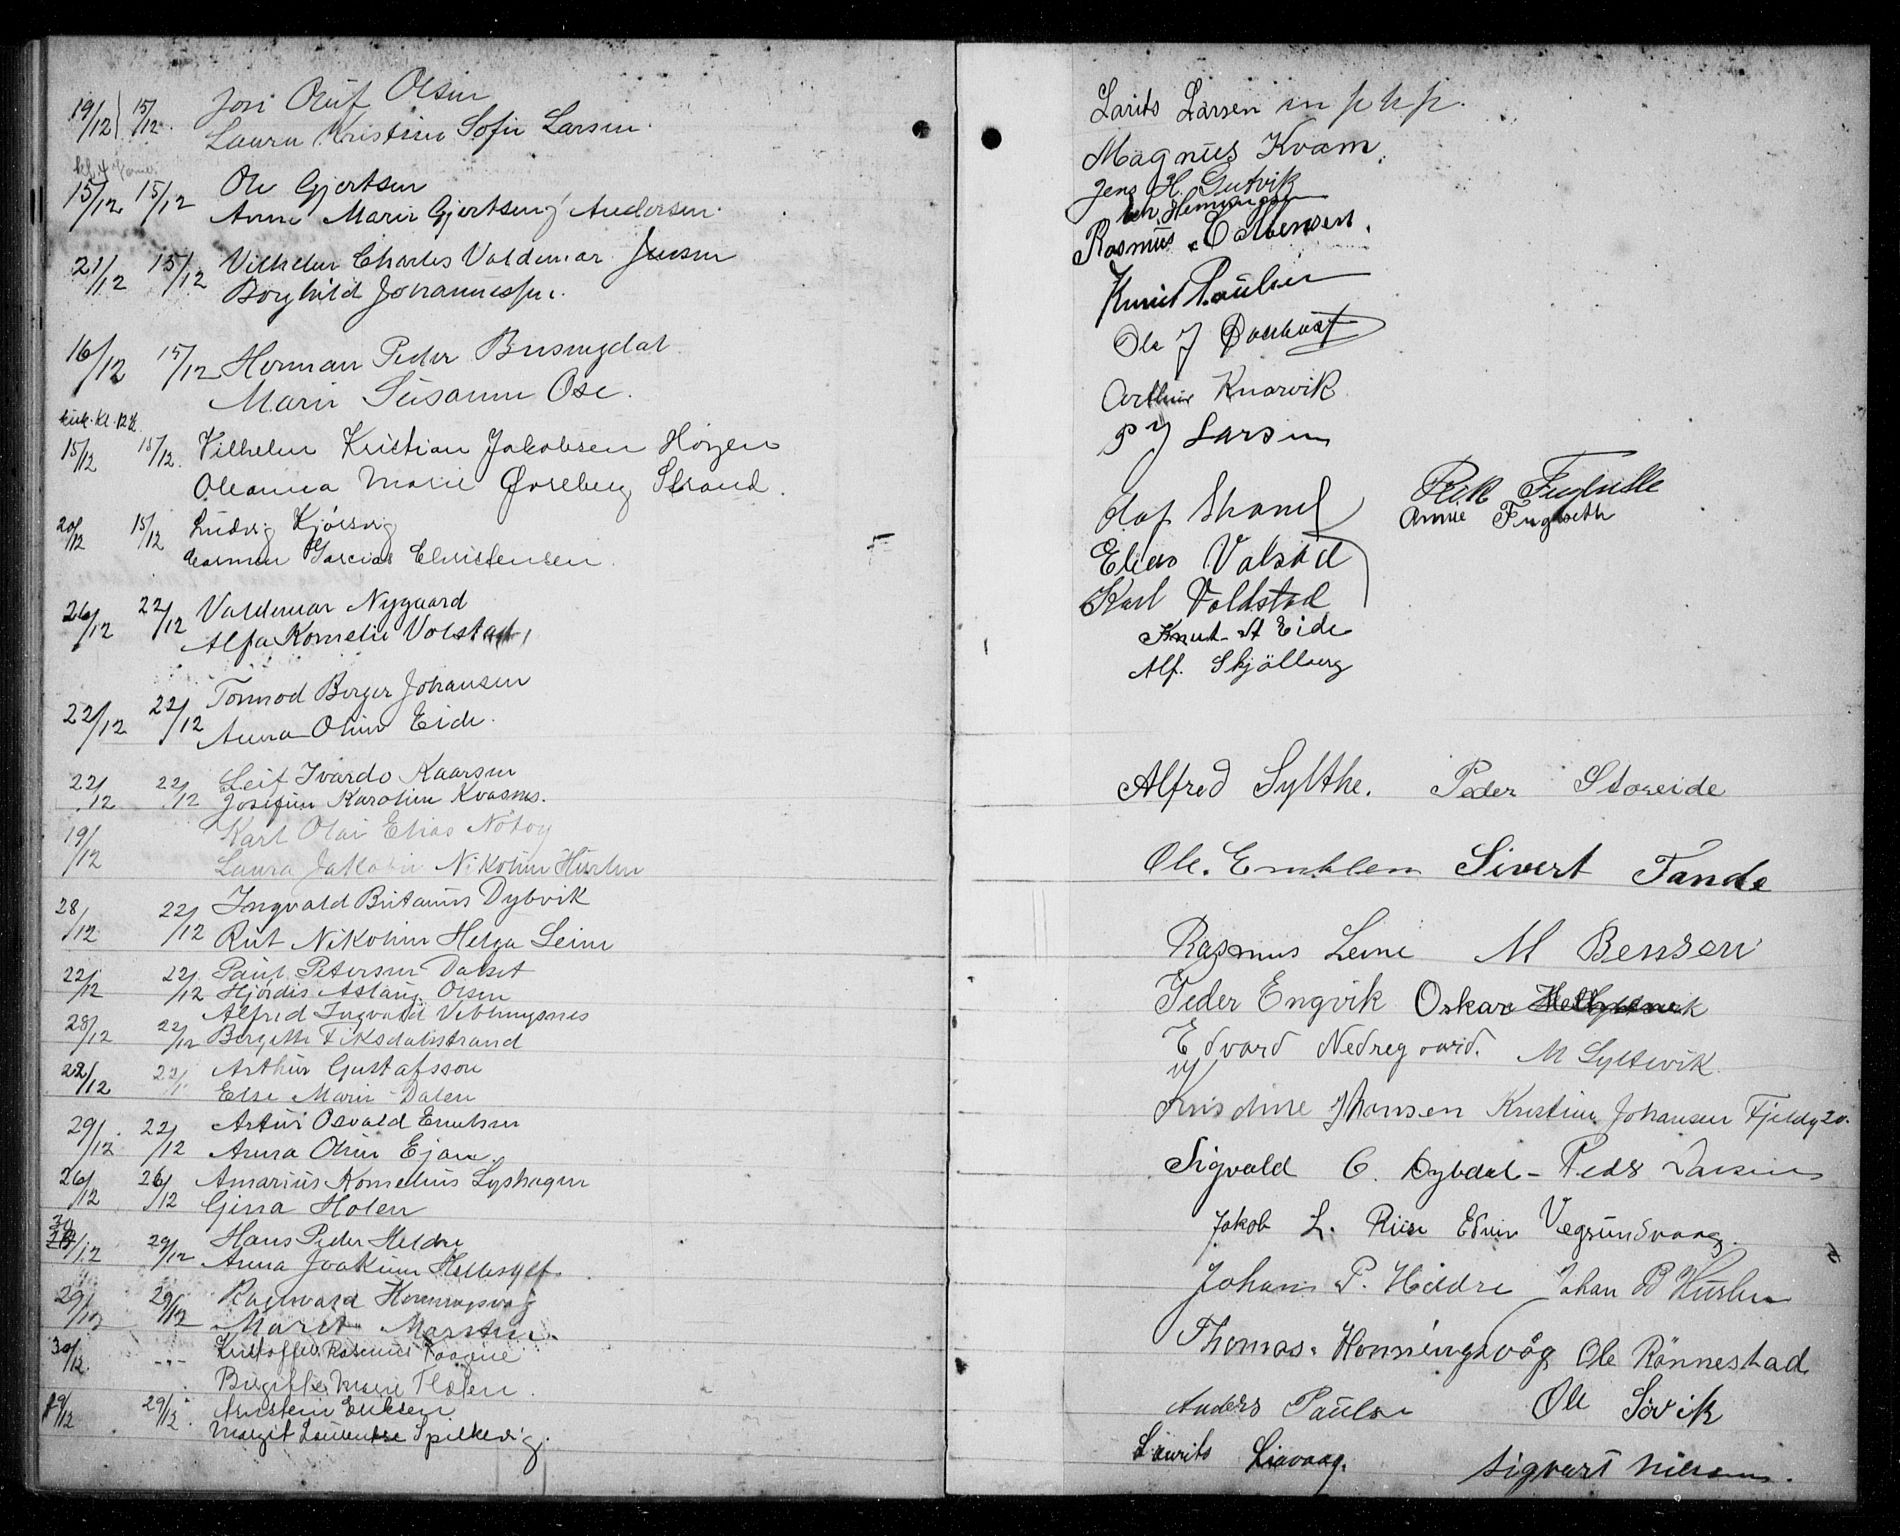 19/12 15/12. Jon Oluf Olsen
Laura Kristine Sofie Larsen.
15/12 15/12 Ole Gjertsen
Anne Marie Gjertsen f Andersen.
21/12 15/12 Vilhelm Charles Valdemar Jensen
Borghild Johannessen.
16/12 15/12 Herman Peder Busengdal
Marie Susanne Ose.
kirk. kl. 12½
15/12 15/12. Vilhelm Kristian Jakobsen Hogen
Oleanna Marie Øvreberg Strand.
20/12 15/12 Ludvig Kjørsvig
Garcias Christensen.
26/12 22/12 Valdemar Nygaard
Alfa Kornelie Volstad,
22/12 22/12 Tormod Berger Johansen
Anna Oline Eide.
22/12 22/12 Leif Ivardo Kaarsen
Josefine Karoline Kvasnes.
19/12 Karl Olai Elias Nöboy
Laura Jakobine Nikoline
28/12 22/12 Ingvald Britanus Dybvik
Rut Nikoline Helga Leine
22/12 22/12 Paul Petersen Dalset
Hjördis Aslaug Olsen
28/12 22/12 Alfred Ingvald Veblungsnes
Bergitte Fiksdalstrand
22/12 22/1 Arthur Gustafsson
Else Marie Dalen
29/12. 22/12 Artur Osvald Emelsen
Anna Oline
26/12 26/12 Amarius Kornelius Lyshagen
Gina Holen
30/12 29/12 Hans Peder Heldre
Anna Joakime Hellesylt.
29/12 29/12 Ragnvald Honningsvåg
Marit
30/12. -"- Kristoffer Rasmus
Birgitte Marie Flølen.
29/12 29/12. Arnstein Eriksen
Margit Laurentse Spilkevig.
Larits Larsen in p h p.
Magnus Kvam.
Jens H. Gutvik
Joh. Henningsen
Rasmus
Knut Paulsen
Ole J
Arthur Knarvik
P J Larsen
Olaf Strand
Fuglseth
Annie Fuglseth
Elias Valstad
Karl Voldstad
Knut A Eide
Alf. Skjölberg
Alfred Sylthe. Peder Storeide
Ole. Emblem Sivert Tande
Rasmus Leine M Bensen
Peder Engvik Oskar
Edvard Nedregaard. M Syltevik.
Krisdine Jhansen Kristine Johansen Fjeldg 20.
Sigvald C. Dybdal - Peder Larsen
Jakob L. Riise Edvin Vegsundvaag.
Johans P. Heldre Johan B
Thomas. Honningsvåg Ole Rönnestad
Anders Paulsen Ole Sövik
Laurits Liavaag. Sigvart Nilsen.